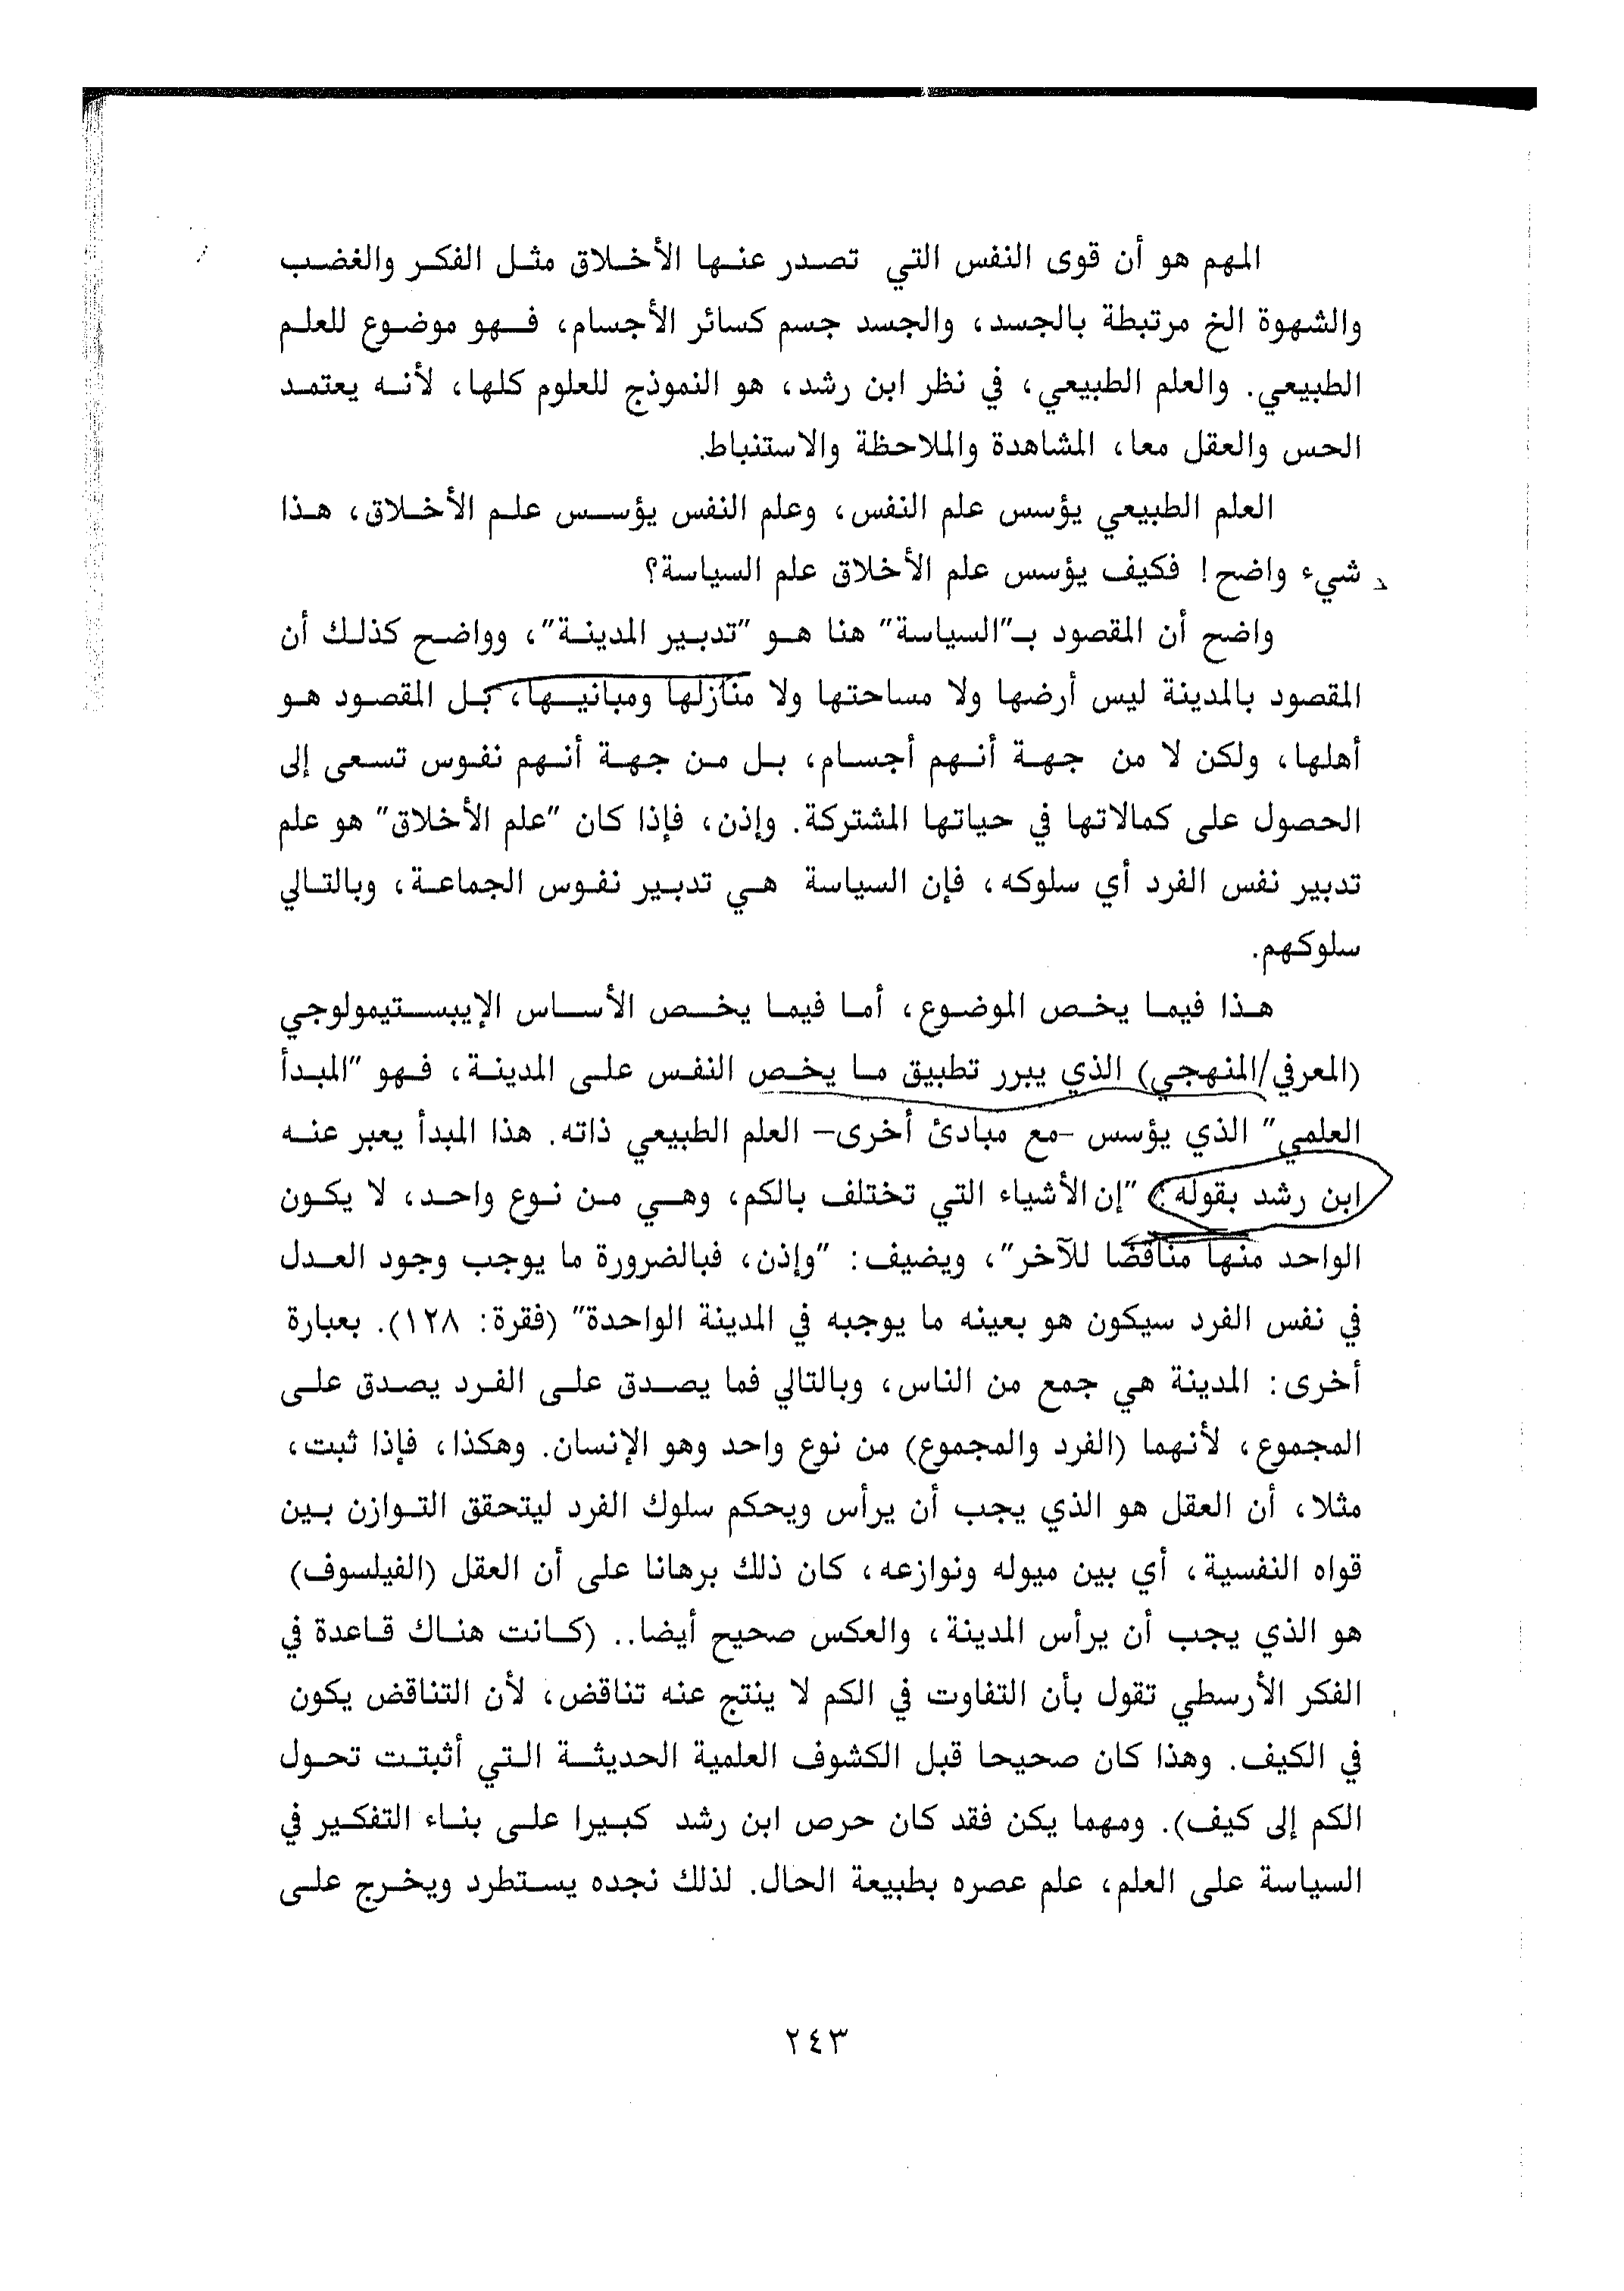 المهم هو أن قوى النفس التي تصدر عنها الأخلاق مثل الفكر والغضب
والشهوة الخ مرتبطة بالجسد، والجسد جسم كسائر الأجسام، فهو موضوع للعلم
الطبيعي. والعلم الطبيعي، في نظر ابن رشد، هو النموذج للعلوم كلها، لأنه يعتمد
الحس والعقل معا، المشاهدة والملاحظة والاستنباط.
العلم الطبيعي يؤسس علم النفس، وعلم النفس يؤسس علم الأخلاق، هذا
شيء واضح! فكيف يؤسس علم الأخلاق علم السياسة؟
واضح أن المقصود بـ"السياسة" هنا هو "تدبير المدينة"، وواضح كذلك أن
المقصود بالمدينة ليس أرضها ولا مساحتها ولا منازلها ومبانيها، بل المقصود هو
أهلها، ولكن لا من جهة أنهم أجسام، بل من جهة أنهم نفوس تسعى إلى
الحصول على كمالاتها في حياتها المشتركة. وإذن، فإذا كان "علم الأخلاق" هو علم
تدبير نفس الفرد أي سلوكه، فإن السياسة هي تدبير نفوس الجماعة، وبالتالي
سلوكهم.
هذا فيما يخص الموضوع، أما فيما يخص الأساس الإيبستيمولوجي
(المعرفي/المنهجي) الذي يبرر تطبيق ما يخص النفس على المدينة، فهو "المبدأ
العلمي" الذي يؤسس -مع مبادئ أخرى- العلم الطبيعي ذاته. هذا المبدأ يعبر عنه
ابن رشد بقوله: "إن الأشياء التي تختلف بالكم، وهي من نوع واحد، لا يكون
الواحد منها مناقضا للآخر"، ويضيف: "وإذن، فبالضرورة ما يوجب وجود العدل
في نفس الفرد سيكون هو بعينه ما يوجبه في المدينة الواحدة" (فقرة: ١٢٨). بعبارة
أخرى: المدينة هي جمع من الناس، وبالتالي فما يصدق على الفرد يصدق على
المجموع، لأنهما (الفرد والمجموع) من نوع واحد وهو الإنسان. وهكذا، فإذا ثبت،
مثلا، أن العقل هو الذي يجب أن يرأس ويحكم سلوك الفرد ليتحقق التوازن بين
قواه النفسية، أي بين ميوله ونوازعه، كان ذلك برهانا على أن العقل (الفيلسوف)
هو الذي يجب أن يرأس المدينة، والعكس صحيح أيضا.. (كانت هناك قاعدة في
الفكر الأرسطي تقول بأن التفاوت في الكم لا ينتج عنه تناقض، لأن التناقض يكون
في الكيف. وهذا كان صحيحا قبل الكشوف العلمية الحديثة التي أثبتت تحول
الكم إلى كيف). ومهما يكن فقد كان حرص ابن رشد كبيرا على بناء التفكير في
السياسة على العلم، علم عصره بطبيعة الحال. لذلك نجده يستطرد ويخرج على
٢٤٣